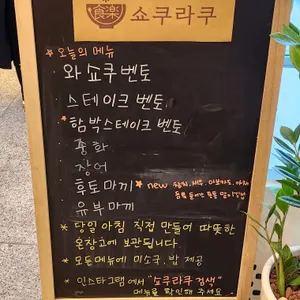 食楽 쇼쿠라쿠
* 오늘의 메뉴
와쇼쿠 벤토
스테이크 벤토
* 함박스테이크 벤토
중화
장어
후토마끼 * new
유부마끼
* 당일 아침 직접 만들어 따뜻한
온장고에 보관됩니다.
* 모든메뉴에 미소국, 밥 제공
* 인스타그램에서 "쇼쿠라쿠 검색"
메뉴를 확인해 주세요.